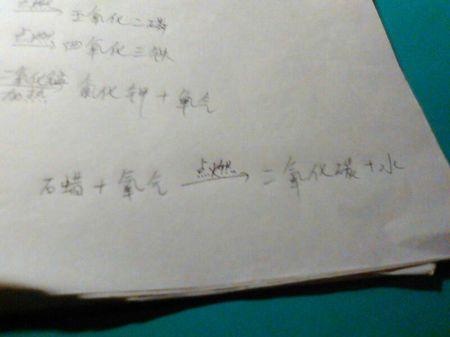 点燃 五氧化二磷
点燃 四氧化三铁
二氧化锰
加热 氯化钾 + 氧气
石蜡 + 氧气 点燃→ 二氧化碳 + 水